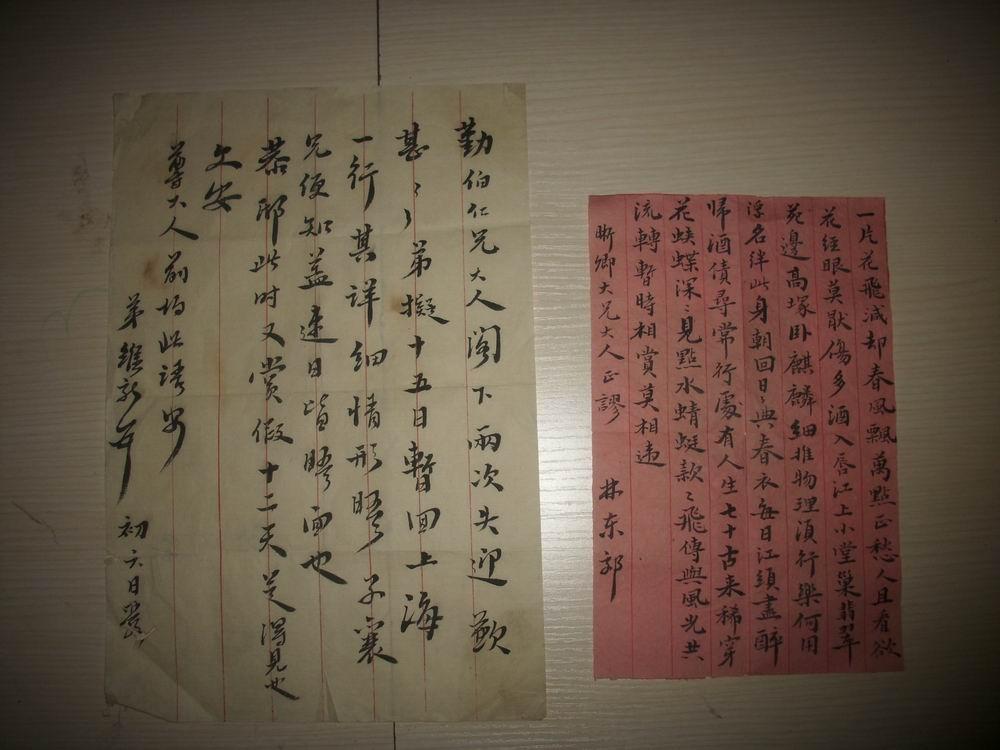 勤伯仁兄大人阁下兩次失迎歉
甚〻弟擬十五日暫回上海
一行其詳細情形晤子襄
兄便知益速日皆晤面也
恭 此时又賞假十二天 得見也
文安
尊大人前均此請安
弟維新
初六日
一片花飛減却春風飄萬點正愁人且看欲
花經眼莫猒傷多酒入唇江上小堂巢翡翠
苑邊高塚卧麒麟細推物理湏行樂何用
浮名絆此身朝回日〻典春衣每日江頭盡醉
帰酒債尋常行處有人生七十古来稀穿
花蛺蝶深〻見點水蜻蜓款〻飛傳與風光共
流轉暫時相賞莫相違
晰卿大兄大人正謬
林东郭